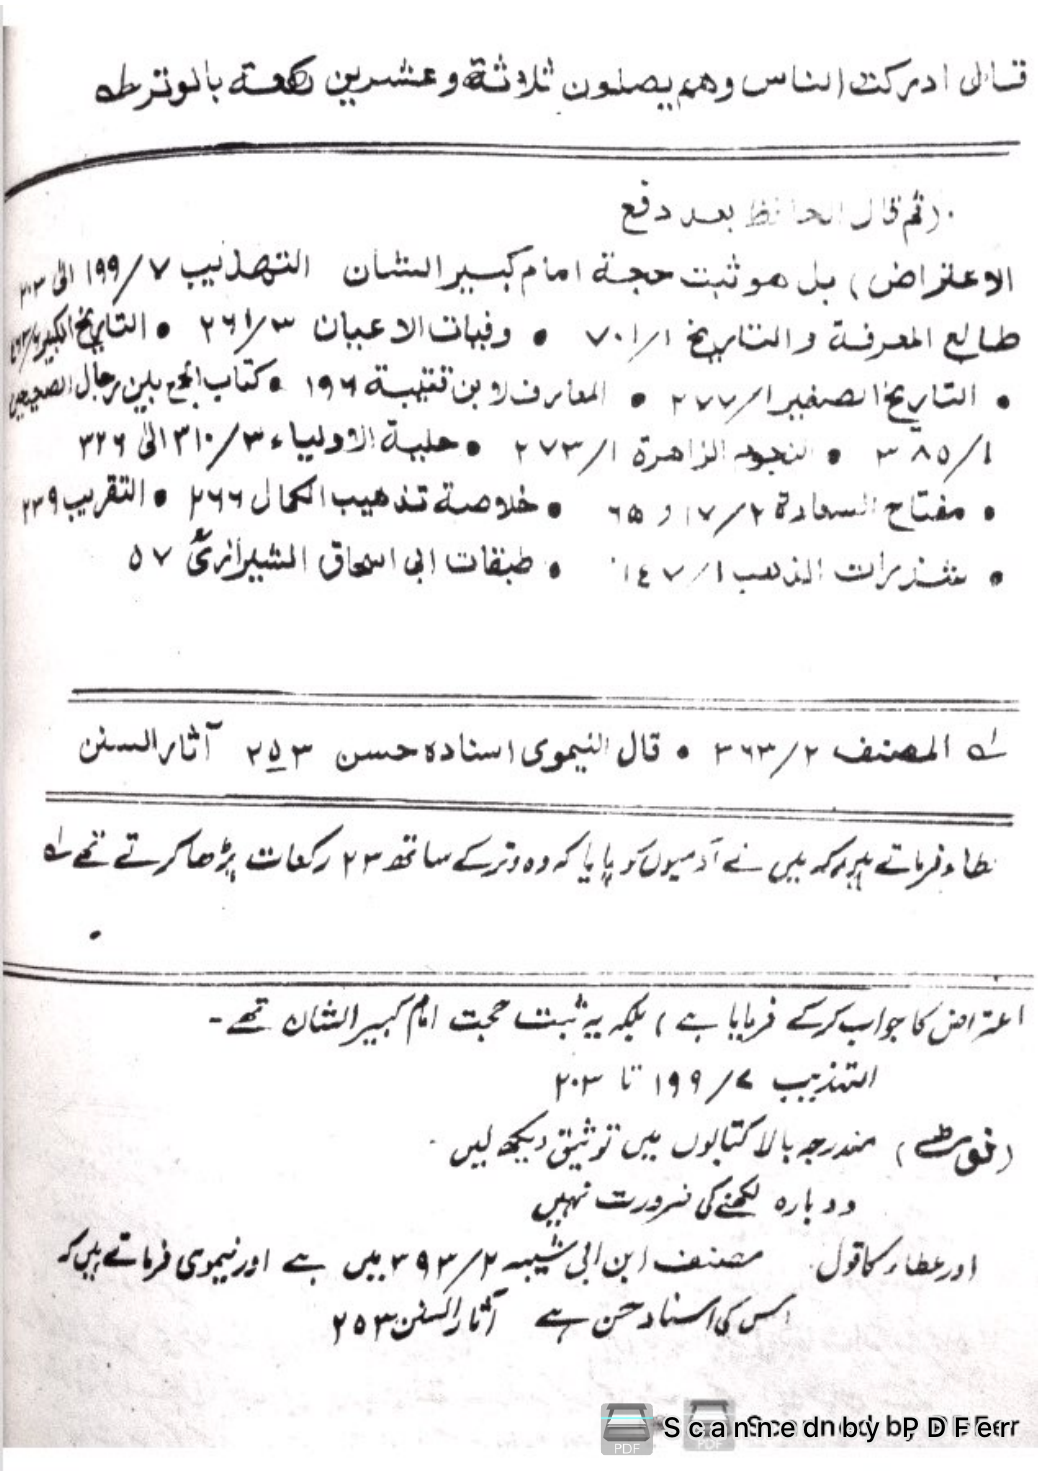 قال ادركت الناس وهم يصلون ثلاثة وعشرين ركعة بالوتر ط
(ثم قال الحافظ بعد دفع
الاعتراض) بل هو ثبت حجة امام كبير الشان التهذيب ۷/۱۹۹ الى ۲۰۳
طالع المعرفة والتاريخ ۱/۷۰۱ • وفيات الاعيان ۳/۲۶۱ • التاريخ الكبير
• التاريخ الصغير ۱/۲۷۷ • المعارف لابن قتيبة ۱۹۶ • كتاب الجمع بين رجال الصحيحين
۱/۳۸۵ • النجوم الزاهرة ۱/۲۷۳ • حلية الاولياء ۳/۳۱۰ الى ۳۲۶
• مفتاح السعادة ۲/۱۷ و ۶۵ • خلاصة تذهيب الكمال ۲۶۶ • التقريب ۲۳۹
• شذرات الذهب ۱/۱۴۷ • طبقات ابى اسحاق الشيرازىؒ ۵۷
لـه المصنف ۲/۳۶۳ • قال النيموى اسناده حسن ۲۵۳ آثار السنن
عطاء فرماتے ہیں کہ میں نے آدمیوں کو پایا کہ وہ وتر کے ساتھ ۲۳ رکعات پڑھا کرتے تھے لـه
اعتراض کا جواب کرکے فرمایا ہے) بلکہ یہ ثبت حجت امام کبیر الشان تھے۔
التہذیب ۷/۱۹۹ تا ۲۰۳
(نوٹ) مندرجہ بالا کتابوں میں توثیق دیکھ لیں۔
دوبارہ لکھنے کی ضرورت نہیں
اور عطاء کا قول مصنف ابن ابی شیبہ ۲/۳۹۳ میں ہے اور نیموی فرماتے ہیں کہ
اس کی اسناد حسن ہے آثار السنن ۲۵۳
Scanned by PDFer